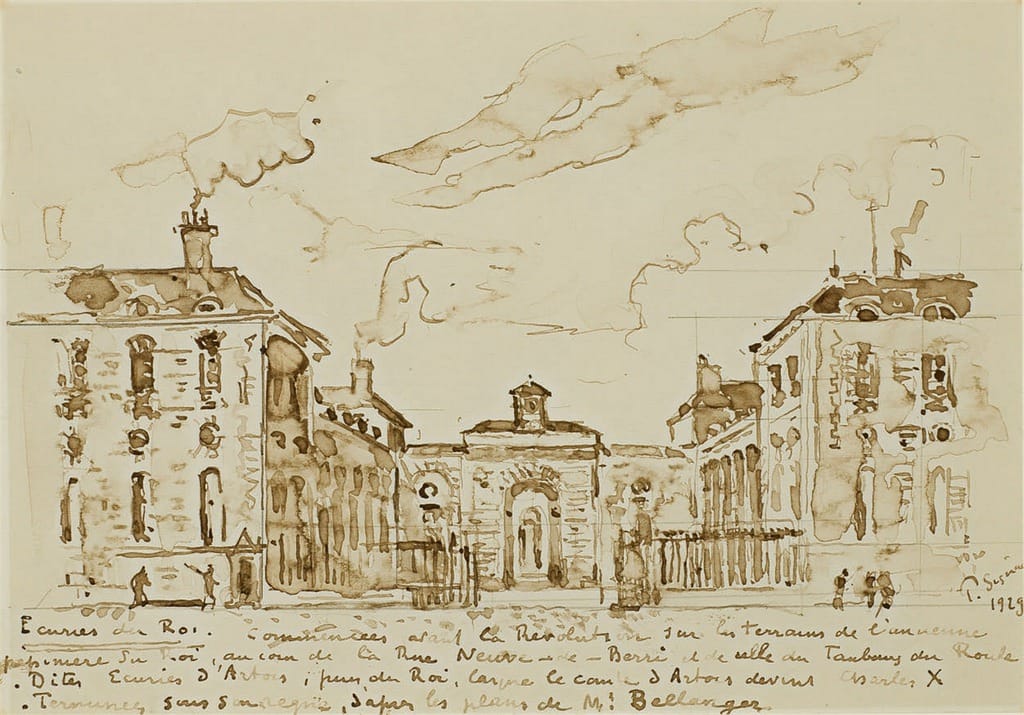 P. Signac
1929
Ecuries du Roi. Commencées avant la Révolution sur les terrains de l'ancienne
pépinière du Roi, au coin de la Rue Neuve-de-Berri et de celle du Faubourg du Roule
. Dites Ecuries d'Artois, puis du Roi, lorsque le comte d'Artois devint Charles X
. Terminées sous son règne, d'après les plans de Mr. Bellanger